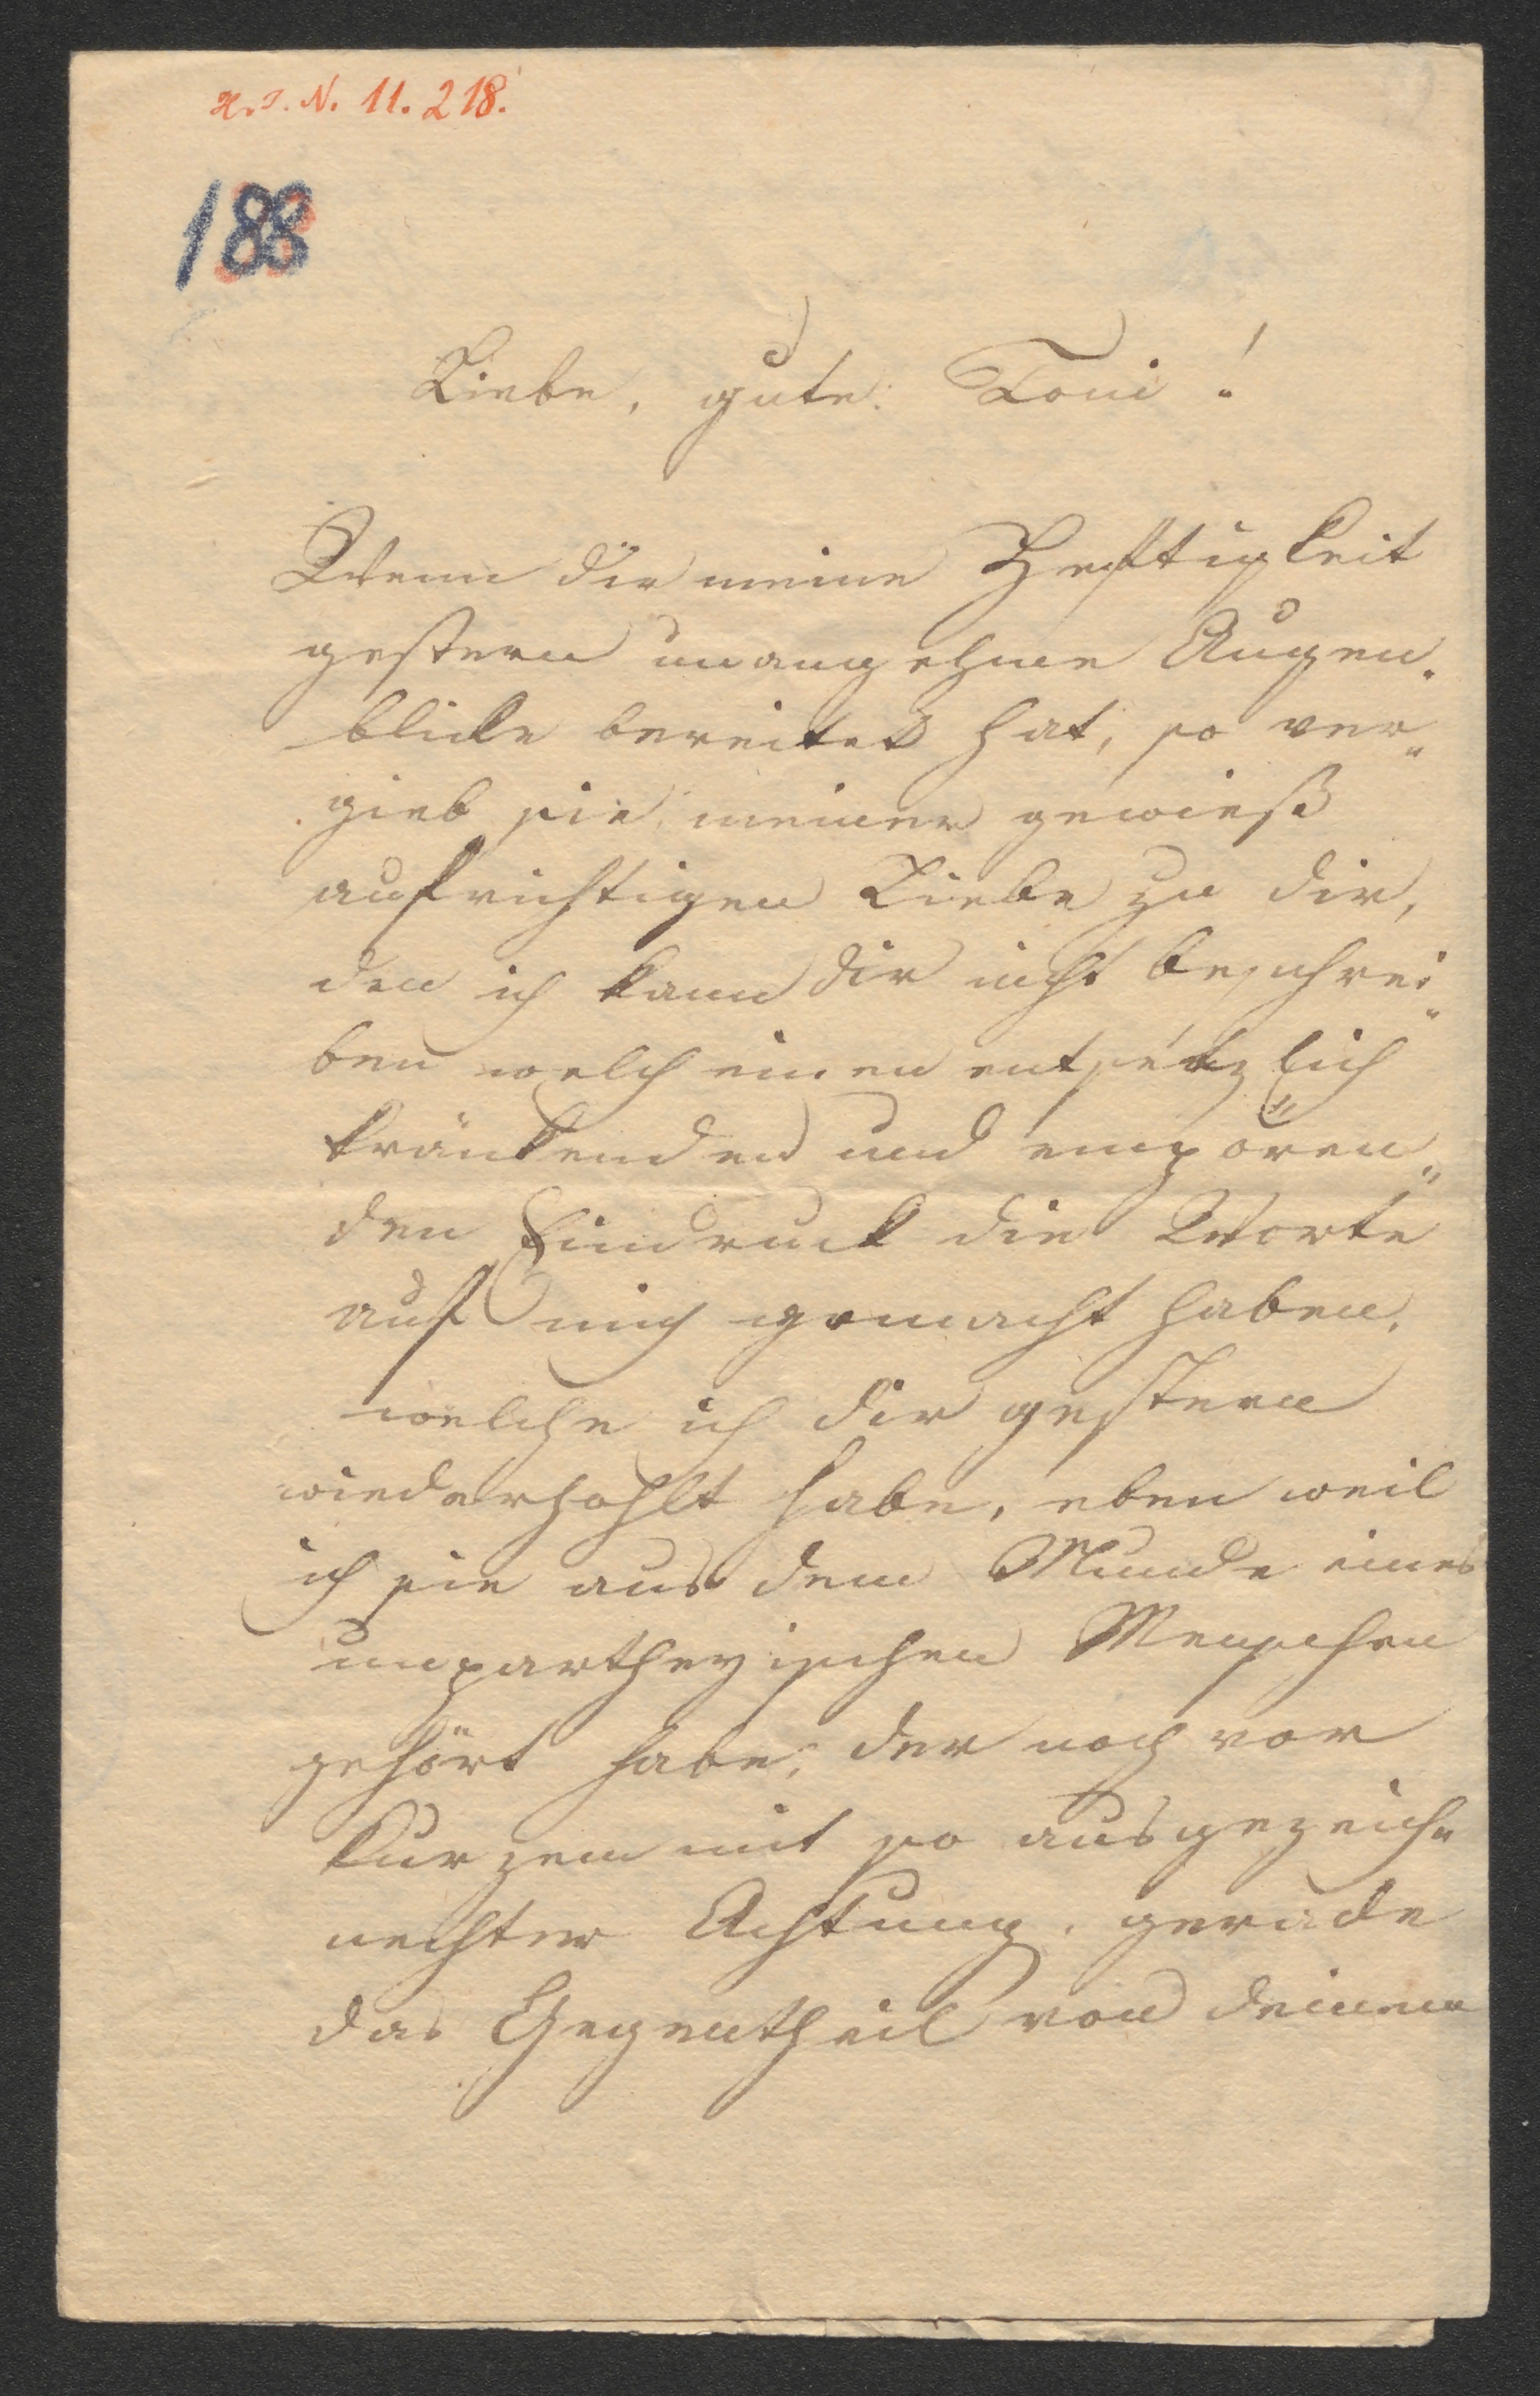 H.I.N. 11.218.
188
Liebe, gute Toni!
Wenn dir meine Heftigkeit
gestern unangehme Augen-
blicke bereitet hat, so ver-
gieb sie meiner gewieß
aufrichtigen Liebe zu dir,
den ich kann dir nicht beschrei-
ben welch einen entsetzlich
kränkenden und empören-
den Eindruck die Worte
auf mich gemacht haben,
welche ich dir gestern
wiederhohlt habe, eben weil
ich sie aus dem Munde eines
unpartheyischen Menschen
gehört habe, der noch vor
Kurzem mit so ausgezeich-
nechter Achtung, gerade
das Gegentheil von deinem